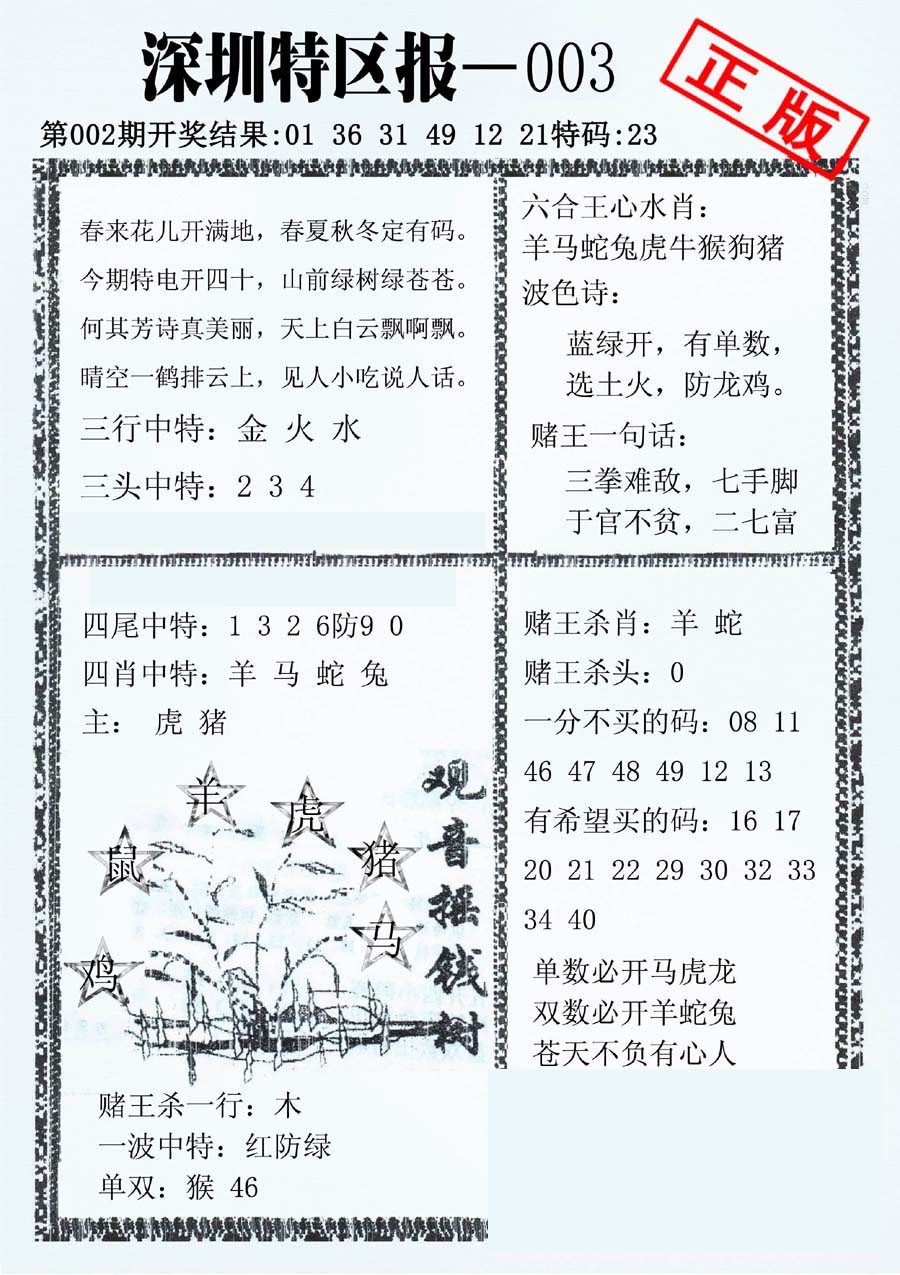 深圳特区报—003
正版
第002期开奖结果:01 36 31 49 12 21特码:23
春来花儿开满地，春夏秋冬定有码。
今期特电开四十，山前绿树绿苍苍。
何其芳诗真美丽，天上白云飘啊飘。
晴空一鹤排云上，见人小吃说人话。
三行中特：金 火 水
三头中特：2 3 4
六合王心水肖：
羊马蛇兔虎牛猴狗猪
波色诗：
蓝绿开，有单数，
选土火，防龙鸡。
赌王一句话：
三拳难敌，七手脚
于官不贫，二七富
四尾中特：1 3 2 6防9 0
四肖中特：羊 马 蛇 兔
主： 虎 猪
羊
虎
鼠
猪
马
鸡
观音摇钱树
赌王杀一行：木
一波中特：红防绿
单双：猴 46
赌王杀肖：羊 蛇
赌王杀头：0
一分不买的码：08 11
46 47 48 49 12 13
有希望买的码：16 17
20 21 22 29 30 32 33
34 40
单数必开马虎龙
双数必开羊蛇兔
苍天不负有心人